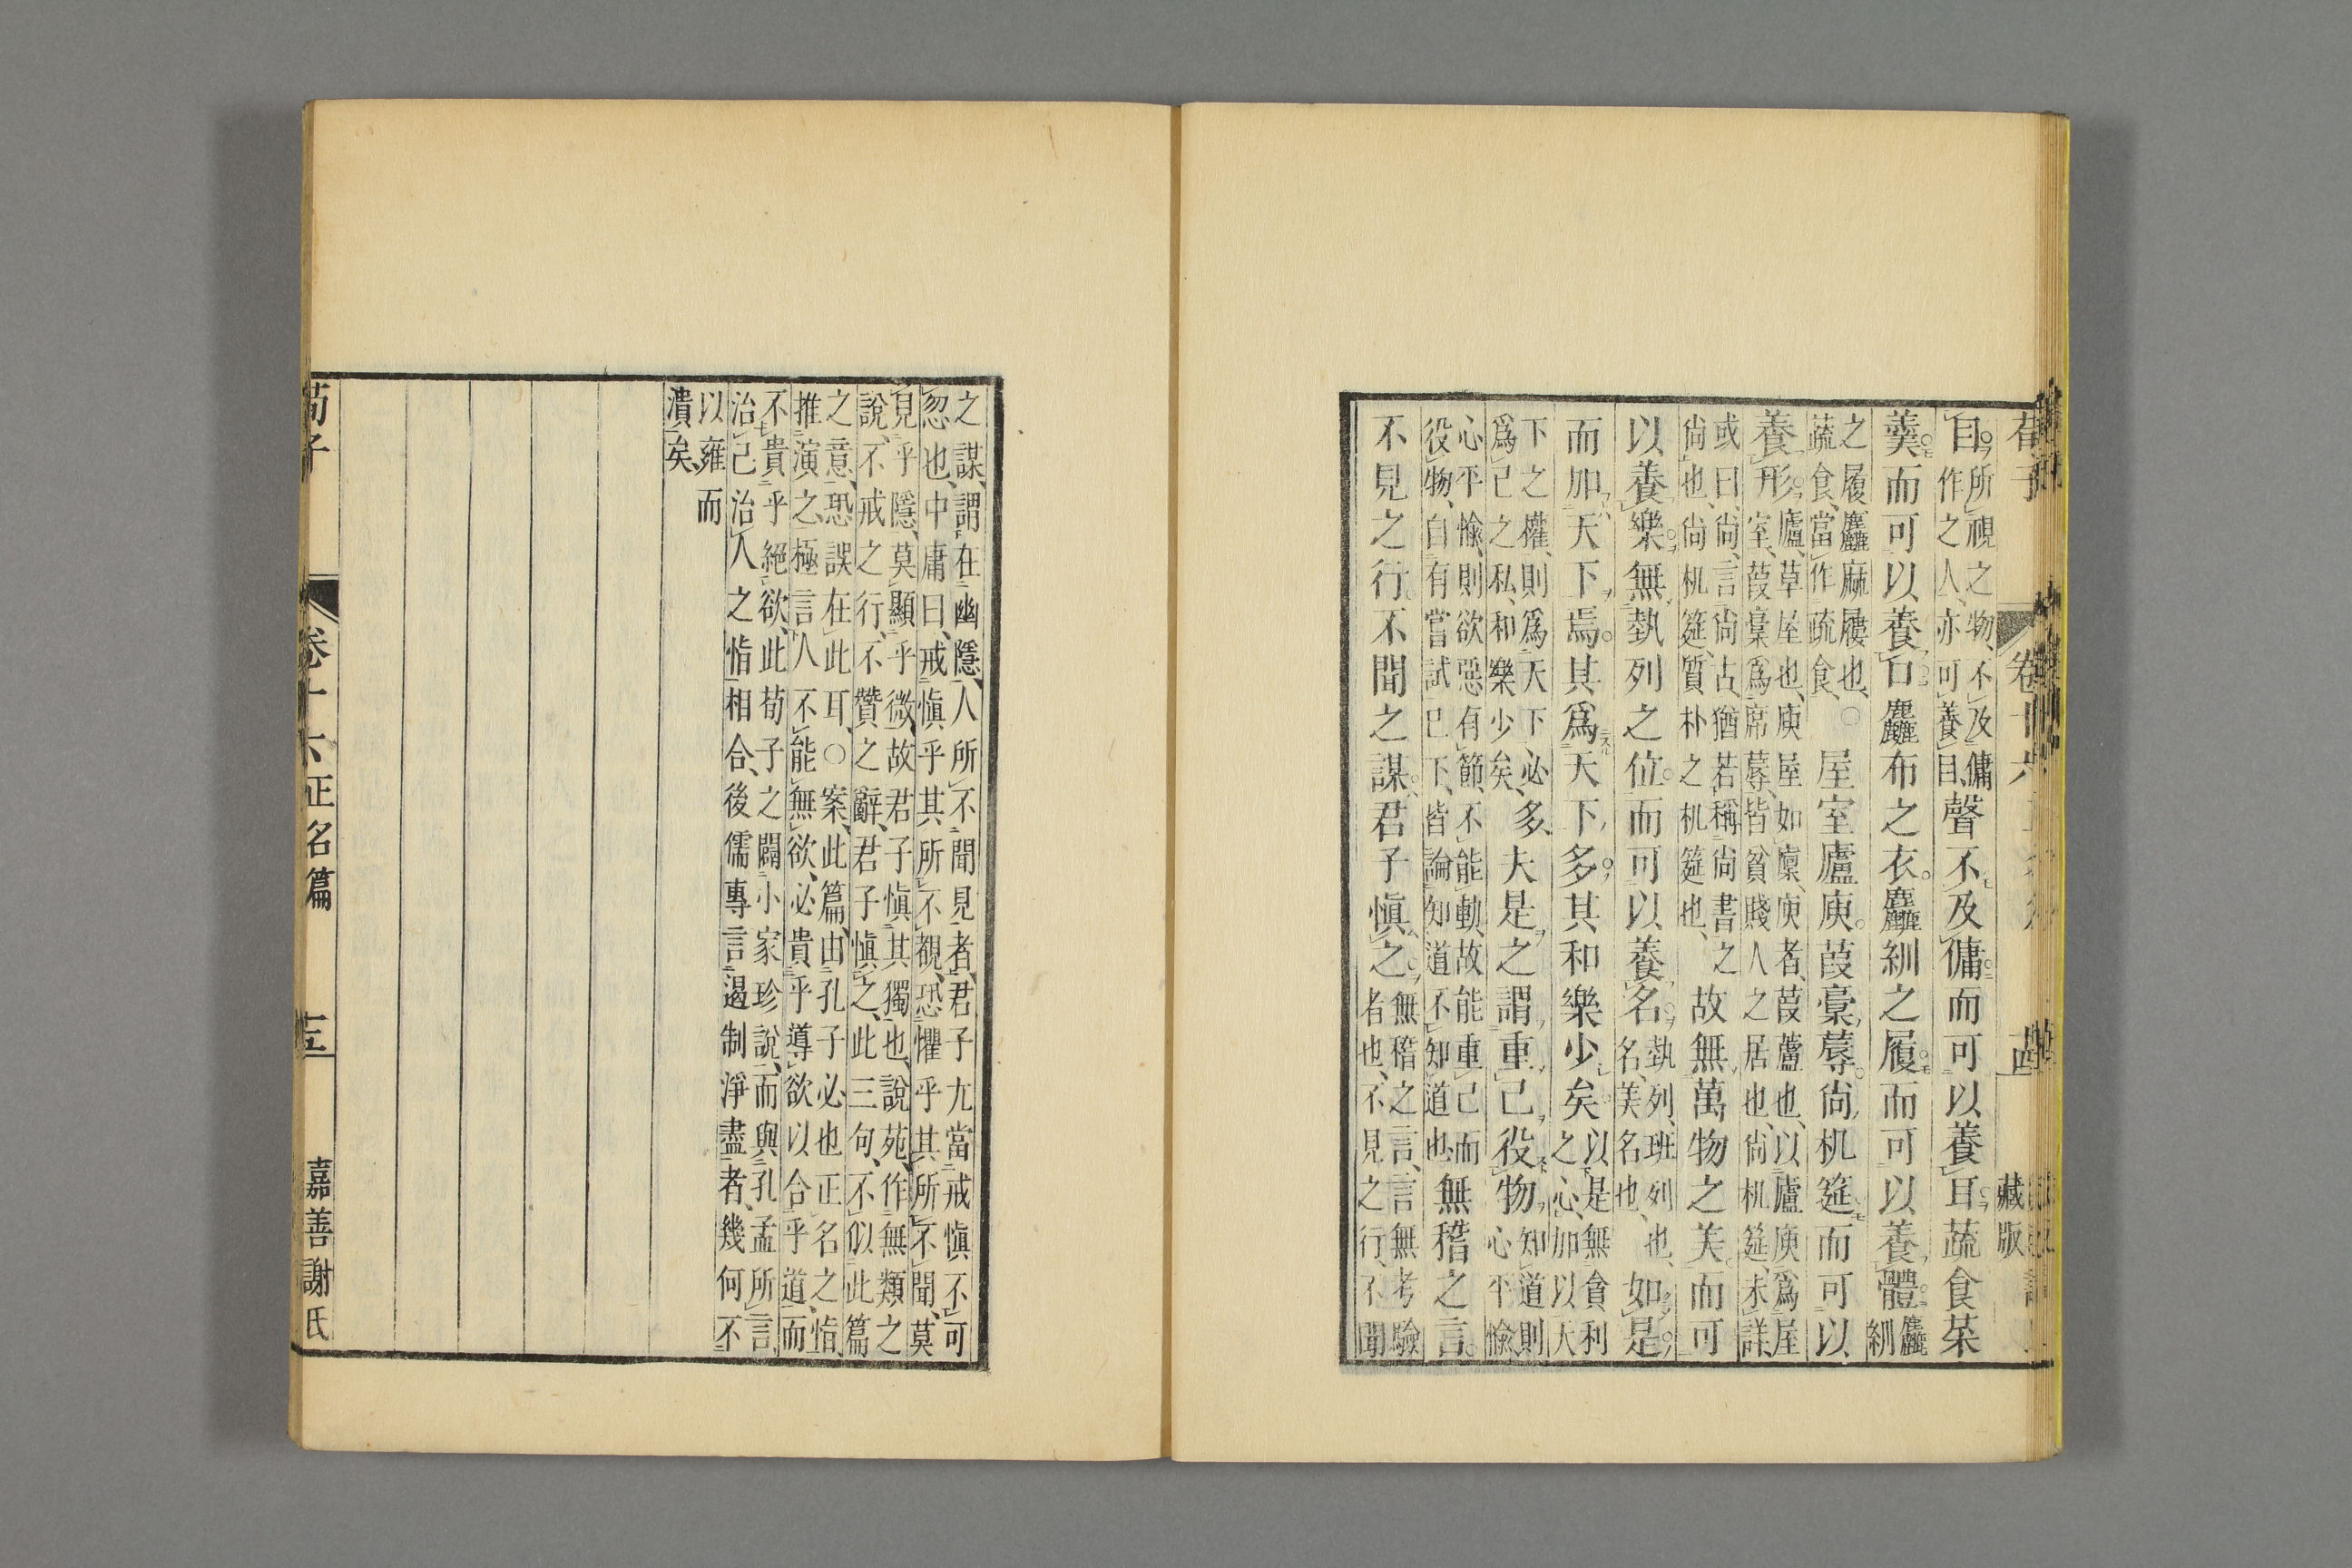 荀子　卷十六　十四　藏版
目所視之物、不及傭
作之人、亦可養目、
聲不及傭而可以養耳蔬食菜
羹而可以養口麤布之衣麤紃之履而可以養體麤
紃
之履、麤麻屨也、○
蔬食、當作疏食、
屋室廬庾葭稾蓐尚机筵而可以
養形廬、草屋也、庾屋如廩庾者、葭蘆也、以廬庾爲屋
室、葭稾爲席蓐、皆貧賤人之居也、尚机筵、未詳、
或曰、尚、言尚古、猶若稱尚書之
尚也、尚机筵、質朴之机筵也、
故無萬物之美而可
以養樂無埶列之位而可以養名埶列、班列也、
名、美名也、
如是
而加天下焉其爲天下多其和樂少矣以是無貪利
之心、加以大
下之權、則爲天下必多、
爲己之私、和樂少矣、
夫是之謂重己役物知道則
心平愉
心平愉、則欲惡有節、不能動、故能重己而
役物、自有嘗試已下、皆論知道不知道也
無稽之言
不見之行不聞之謀君子愼之無稽之言、言無考驗
者也、不見之行、不聞
之謀、謂在幽隱、人所不聞見者、君子尤當戒愼不可
忽也、中庸曰、戒愼乎其所不覩、恐懼乎其所不聞、莫
見乎隱、莫顯乎微、故君子愼其獨也、說苑、作無類之
說、不戒之行、不贊之辭、君子愼之、此三句、不似此篇
之意、恐誤在此耳、○案、此篇、由孔子必也正名之恉、
推演之、極言人不能無欲、必貴乎導欲以合乎道、而
不貴乎絕欲、此荀子之闢小家珍說、而與孔孟所言、
治己治人之恉相合、後儒專言遏制淨盡者、幾何不
以雍而
潰矣、
荀子　卷十六正名篇　嘉善謝氏